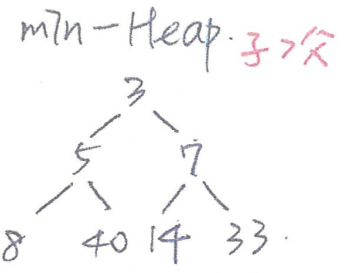 min-Heap. 子>父
3
5 7
8 40 14 33.